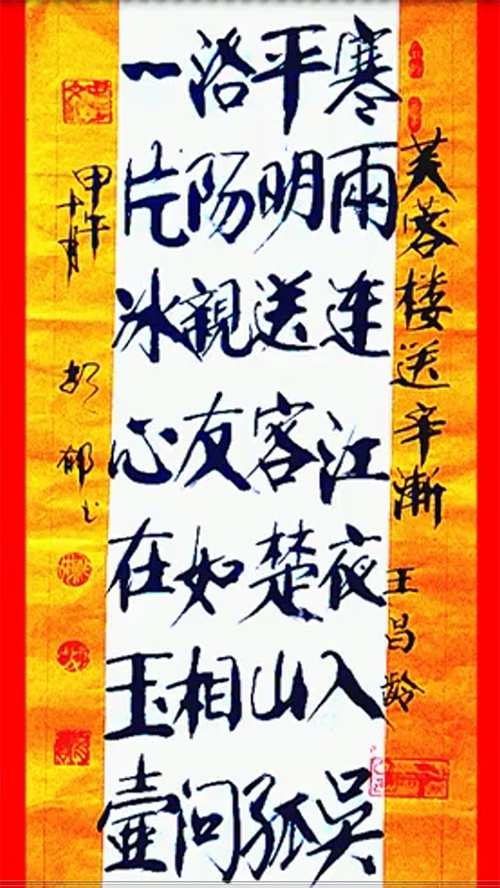 芙蓉楼送辛漸 王昌龄
寒雨连江夜入吳
平明送客楚山孤
洛陽親友如相问
一片冰心在玉壺
甲午
十月
郁书